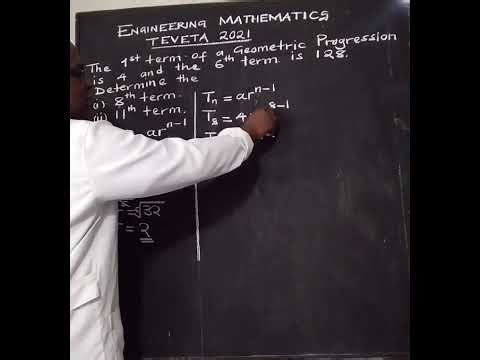 ENGINEERING MATHEMATICS
TEVETA 2021
The 1st term of a Geometric Progression
is 4 and the 6th term is 128.
Determine the
(i) 8th term.
(ii) 11th term.
ar^n-1
√32
= 2
Tn = ar^n-1
T8 = 4 8-1